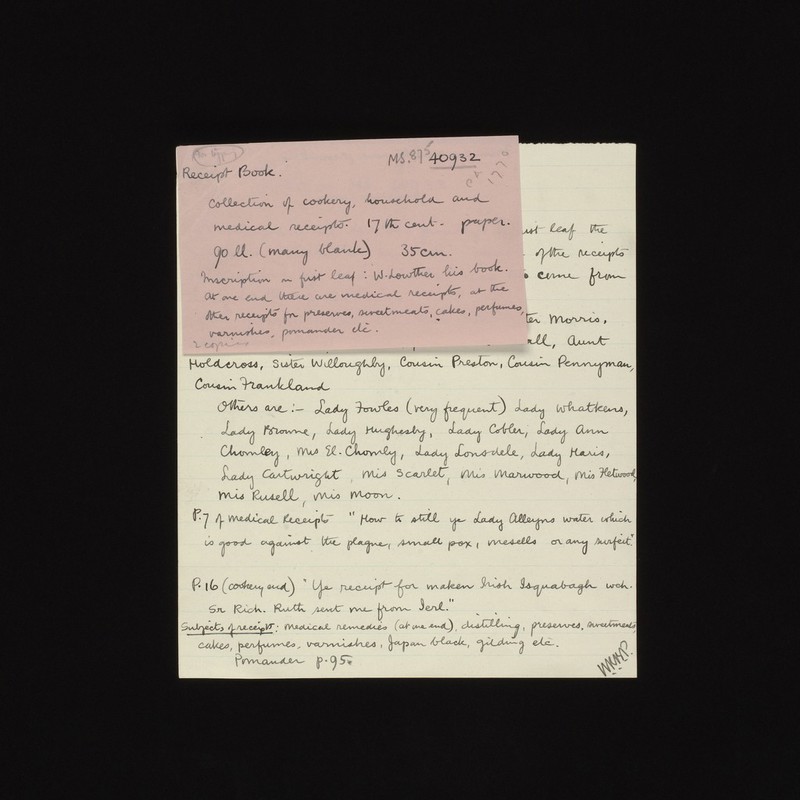 MS. 875 40932
Receipt Book.
Collection of cookery, household and
medical receipts. 17th cent. paper.
90 ll. (many blank) 35cm.
Inscription on first leaf: W. Lowther his book.
At one end there are medical receipts, at the
other receipts for preserves, sweetmeats, cakes, perfumes,
varnishes, pomander etc.
2 copies
leaf the
of the receipts
come from
Morris,
Aunt
Holdcross, Sister Willoughby, Cousin Preston, Cousin Pennyman,
Cousin Frankland
Others are :- Lady Fowles (very frequent) Lady Whatkens,
Lady Browne, Lady Hughesby, Lady Cobler, Lady Ann
Chomley, Mis El. Chomly, Lady Lonsdele, Lady Haris,
Lady Cartwright, Mis Scarlet, Mis Marwood, Mis Fletwood,
Mis Rusell, Mis Moon.
P.7 of Medical Receipts "How to still ye Lady Alleyns water which
is good against the plague, small pox, mesells or any surfeit."
P.16 (cookery end) "Ye receipt for maken Irish Isquabagh wch.
Sr Rich. Ruth sent me from Ierl."
Subjects of receipts: medical remedies (at one end), distilling, preserves, sweetmeats,
cakes, perfumes, varnishes, Japan black, gilding etc.
Pomander p.95